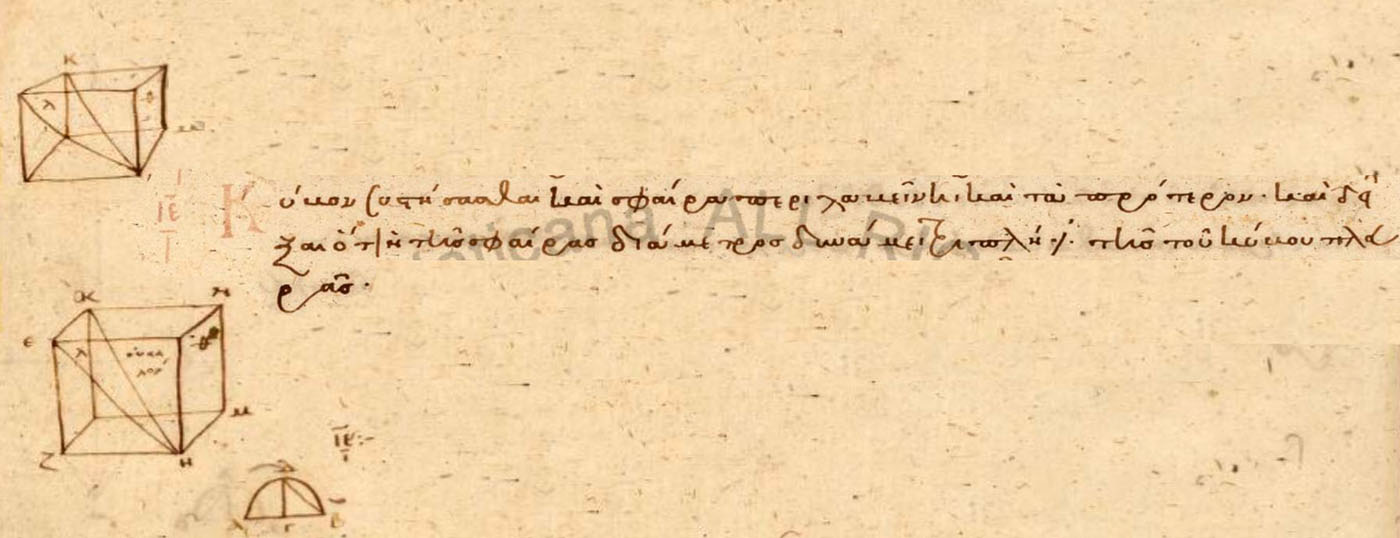 Κ
λ
ιε
Κύβον συστήσασθαι καὶ σφαίρα περιλαβεῖν ἧ καὶ τὰ πρότερον· καὶ δεῖ
ξαι ὅτι ἡ τῆς σφαίρας διάμετρος δυνάμει τριπλῆ ἐστι τῆς τοῦ κύβου πλευ
ρᾶς·
Κ
Ν
ε
λ
θ
μ
Ζ
Η
ιε
Α Γ Β